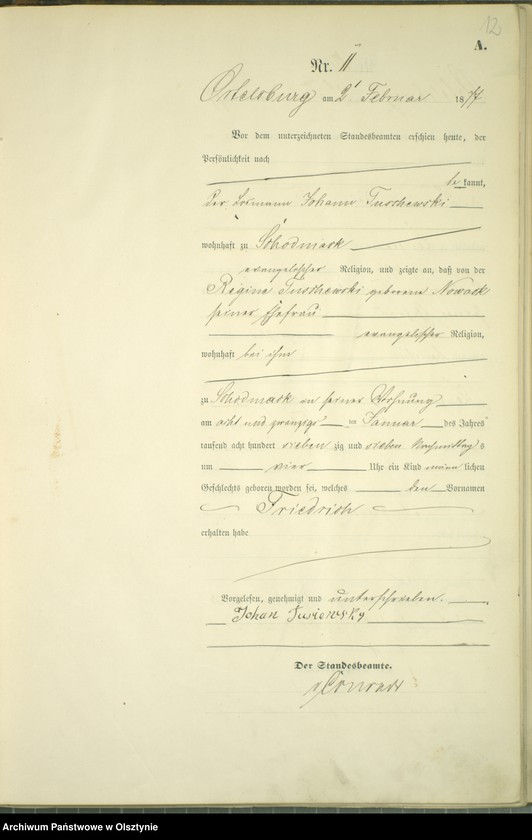 12
A.
Nr. 11
Ortelsburg am 2 Februar 1877
Vor dem unterzeichneten Standesbeamten erschien heute, der
Persönlichkeit nach
be kannt,
der Losmann Johann Tuschewski
wohnhaft zu Schodmack
evangelischer Religion, und zeigte an, daß von der
Regine Tuschewski geborene Nowack
seiner Ehefrau
evangelischer Religion,
wohnhaft bei ihm
zu Schodmack in seiner Wohnung
am acht und zwanzigs ten Januar des Jahres
tausend acht hundert sieben zig und sieben Nachmittags
um vier Uhr ein Kind männ lichen
Geschlechts geboren worden sei, welches den Vornamen
Friedrich
erhalten habe
Vorgelesen, genehmigt und unterschrieben.
Johan
Der Standesbeamte.
v Conradi
Archiwum Państwowe w Olsztynie